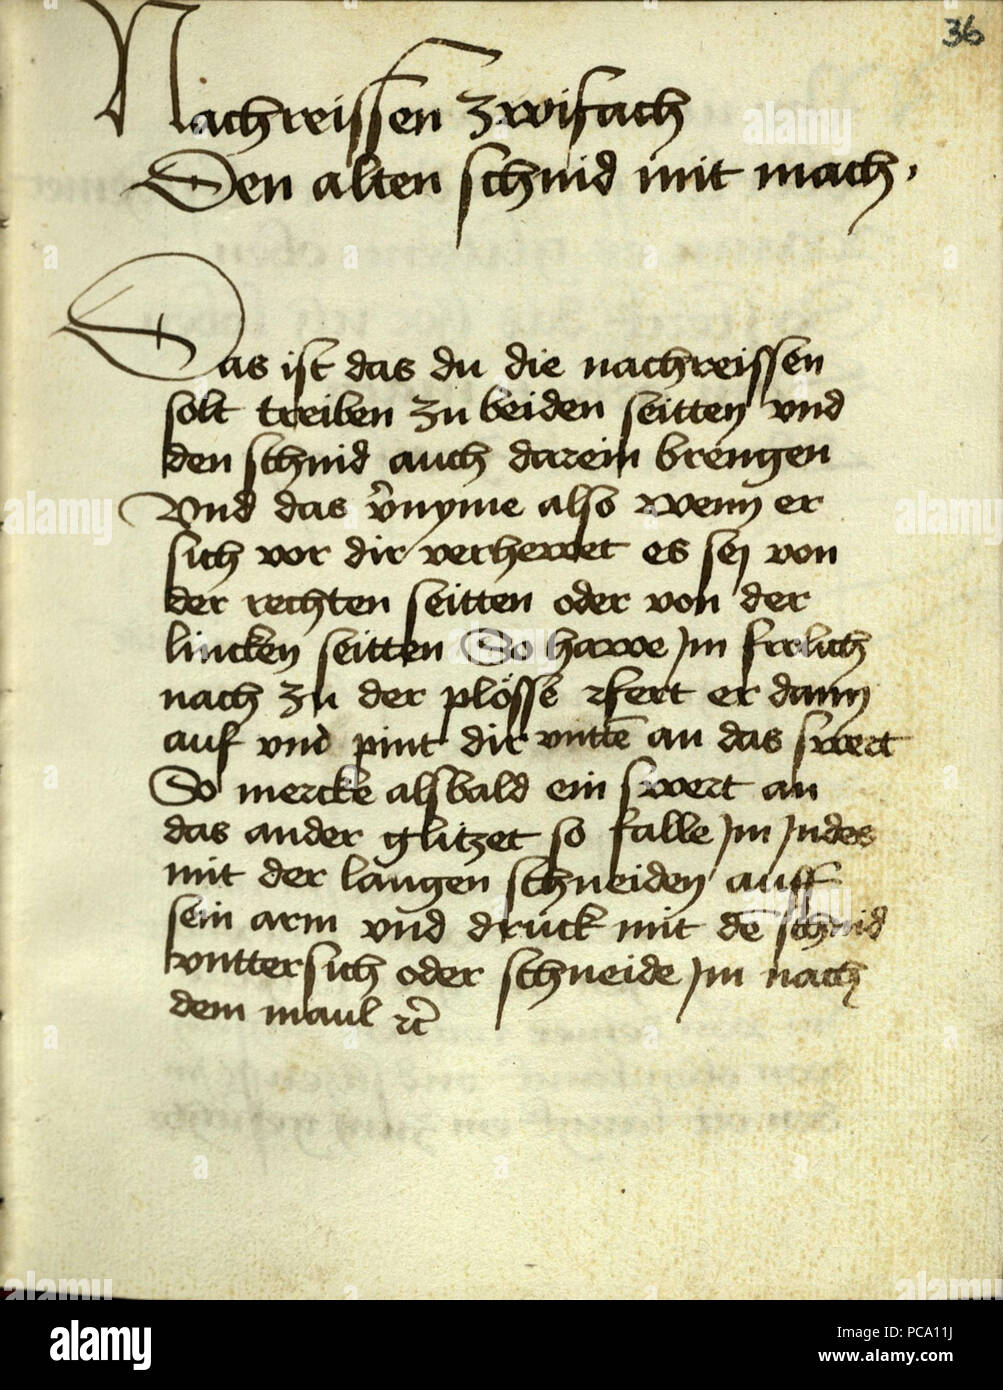 36
Nachreissen zwifach
Den alten schnid mit mach ·
Das ist das du die nachreissen
solt treiben zu beiden seitten vnd
den schnid auch darein brengen
Vnd das v̉nyme also wenn er
sich vor dir verhewet es sej von
der rechten seitten oder von der
lincken seitten So hawe Jm frelich
nach zu der plösse fert er dann
auf vnd pint dir vntte͂ an das swert
So mercke alsbald ein swert an
das ander glitzet so falle Jm Jndes
mit der langen schneiden auff
sein arm vnd druck mit de͂ schnid
vnttersich oder schneide Jm nach
dem maul ꝛc̃
a alamy stock photo
Image ID: PCA11J
www.alamy.com